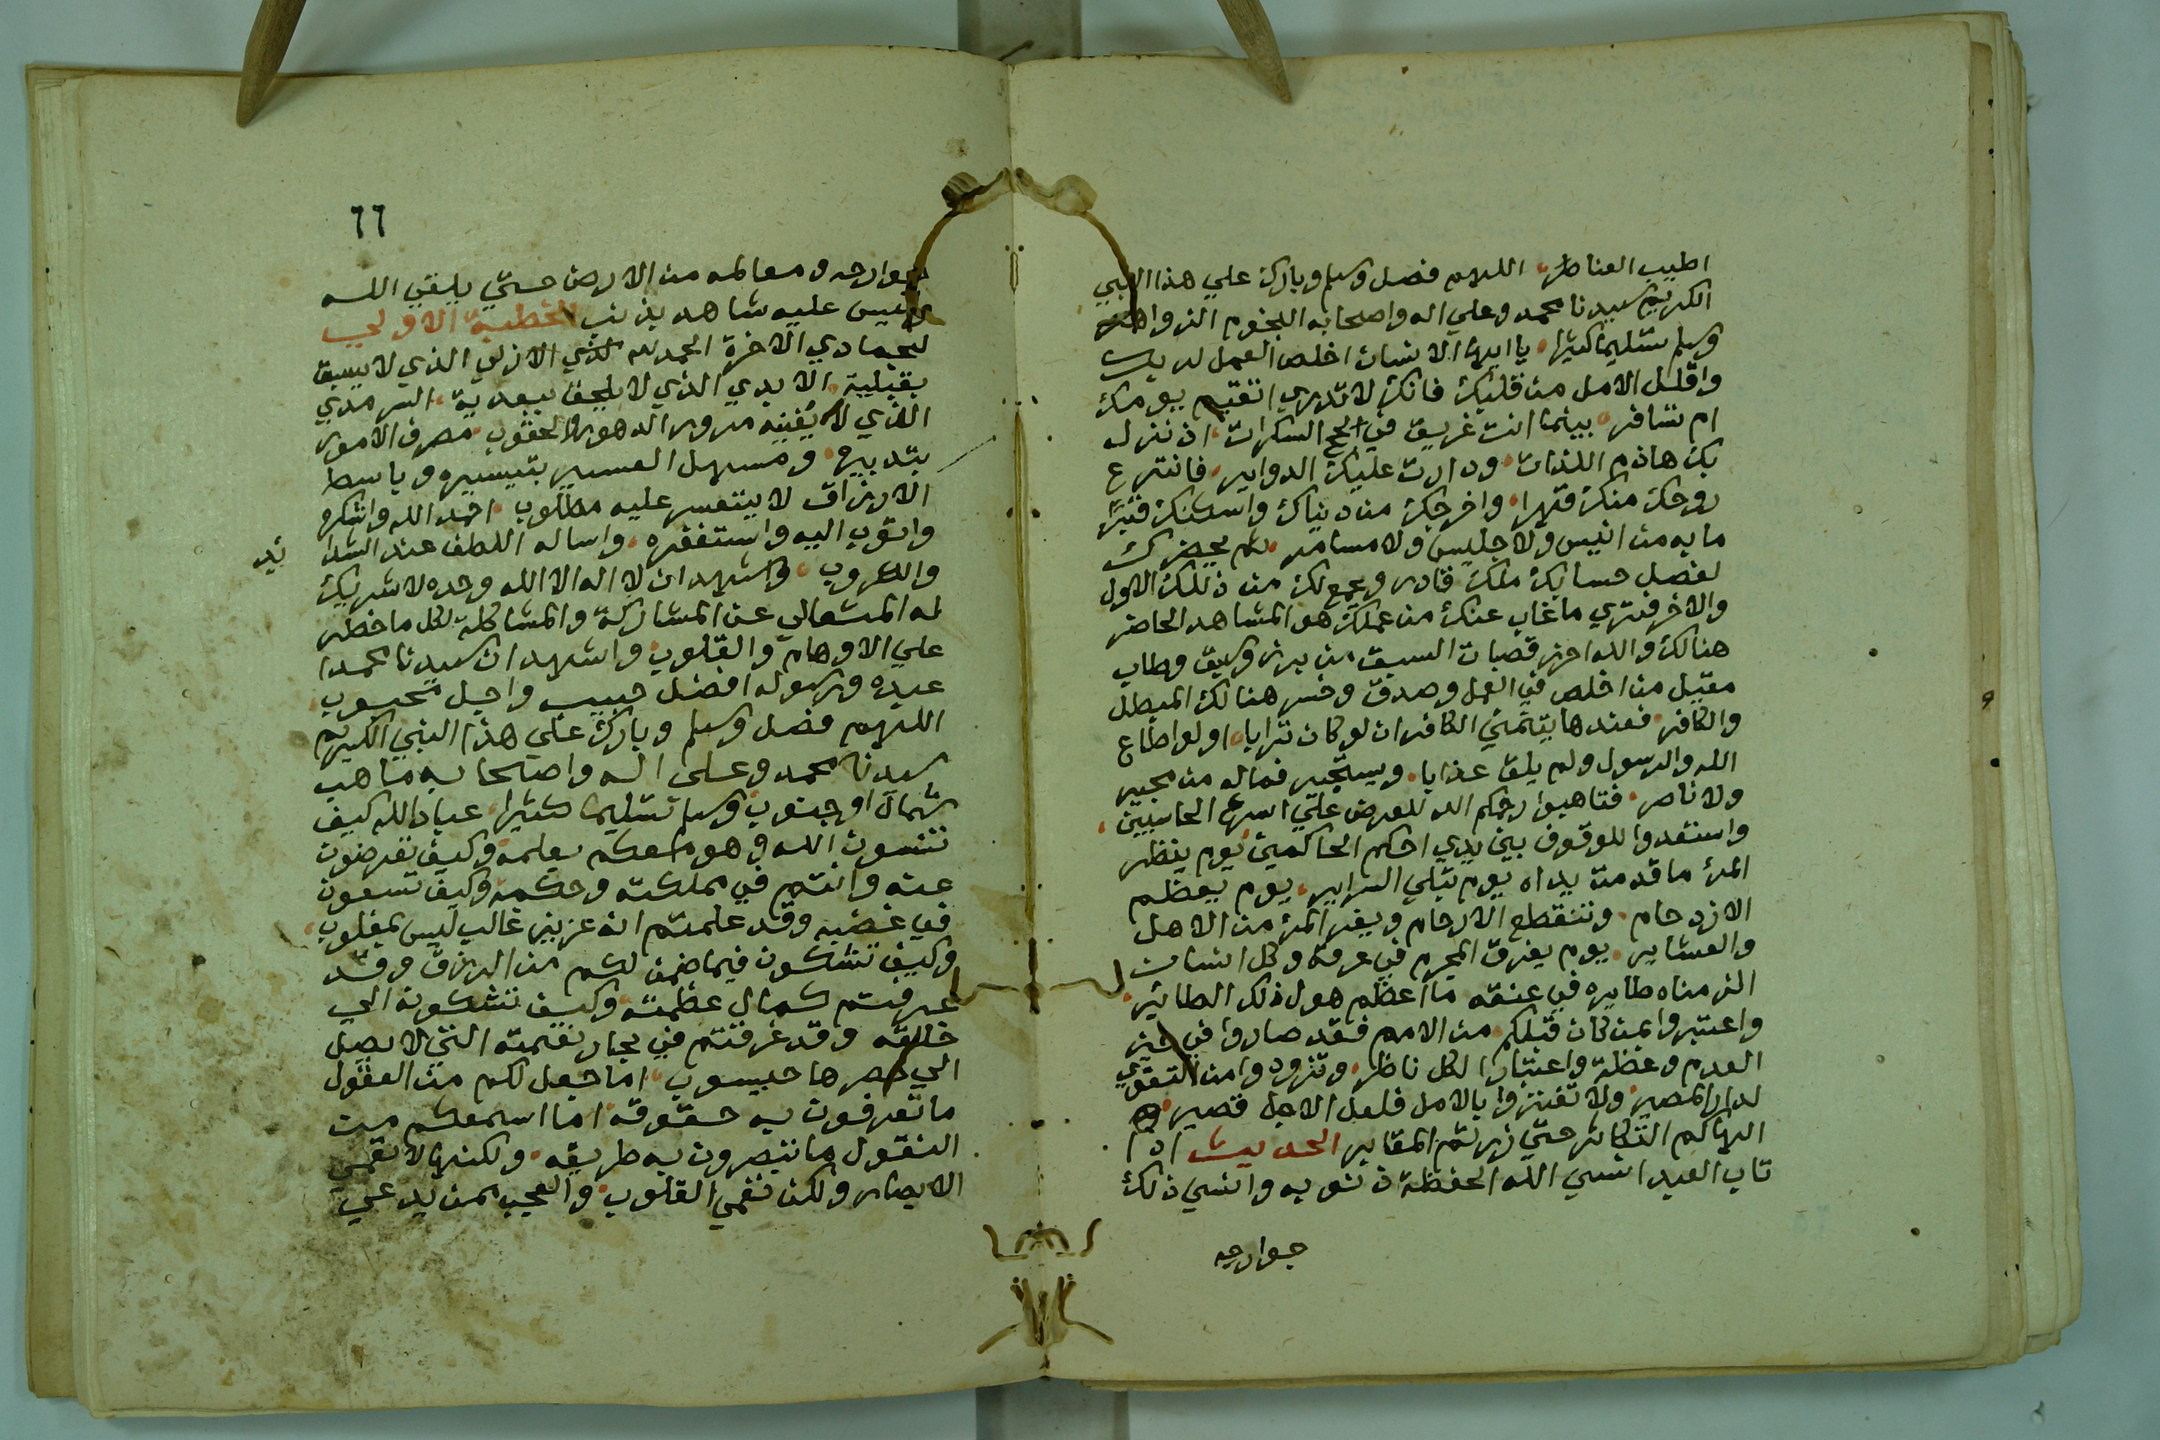 اطيب العناصر، اللهم فصل وسلم وبارك علي هذا النبي
الكريم سيدنا محمد وعلي اله واصحابه النجوم الزواهر
وسلم تسليما كثيرا، يا ايها الانسان اخلص العمل لربك
واقلل الامل من قلبك فانك لا تدري اتقيم يومك
ام تسافر، بينما انت غريق في لجج السكرات، اذ نزل
بك هاذم اللذات، ودارت عليك الدواير، فانتزع
روحك منك قهرا، واخرجك من دنياك واسكنك قبرا
ما به من انيس ولا جليس ولا مسامر، ثم يحضرك
لفصل حسابك ملك قادر ويجمع لك من ذلك الاول
والاخر فتري ما غاب عنك من عملك هو المشاهد الحاضر
هنالك والله احرز قصبات السبق من برز وسبق وطاب
مقيل من اخلص في العمل وصدق وخسر هنالك المبطل
والكافر، فعندها يتمني الكافر ان لو كان ترابا، او لو اطاع
الله والرسول ولم يلق عذابا، ويستجير فماله من مجير
ولا ناصر، فتاهبوا رحمكم الله للعرض علي اسرع الحاسبين،
واستعدوا للوقوف بين يدي احكم الحاكمين يوم ينظر
المرء ما قدمت يداه يوم تبلي السراير، يوم يعظم
الازدحام، وتنقطع الارحام ويفر المرء من الاهل
والعشاير، يوم يغرق المجرم في عرقه وكل انسان
الزمناه طايره في عنقه ما اعظم هول ذلك الطائر،
واعتبروا بمن كان قبلكم من الامم فقد صاروا في حيز
العدم وعظة واعتبارا لكل ناظر، وتزودوا من التقوي
لدار المصير، ولا تغتروا بالامل فلعل الاجل قصير،
الهاكم التكاثر حتي زرتم المقابر الحديث اذا
تاب العبد انسي الله الحفظة ذنوبه وانسي ذلك
جوارحه
٦٦
جوارحه ومعالمه من الارض حتي يلقي الله
وليس عليه شاهد بذنب الخطبة الاولي
لجمادي الاخرة الحمد لله الازلي الذي لا يسبق
بقبلية، الابدي الذي لا يلحق ببعدية، السرمدي
الذي لا يفنيه مرور الدهور والحقوب، مصرف الامور
بتدبيره، ومسهل العسير بتيسيره وباسط
الارزاق لا يتعسر عليه مطلوب، احمد الله واشكره
واتوب اليه واستغفره، واساله اللطف عند الشدا
ئد
والكروب، واشهد ان لا اله الا الله وحده لا شريك
له المتعالي عن المشاركة والمشاكلة لكل ما خطر
علي الاوهام والقلوب، واشهد ان سيدنا محمدا
عبده ورسوله افضل حبيب واجل محبوب،
اللهم فصل وسلم وبارك علي هذا النبي الكريم
سيدنا محمد وعلي اله واصحابه ما هب
شمال او جنوب وسلم تسليما كثيرا، عباد الله كيف
تنسون الله وهو معكم بعلمه وكيف تعرضون
عنه وانتم في مملكته وحكمه وكيف تسعون
في غضبه وقد علمتم انه عزيز غالب ليس بمغلوب،
وكيف تشكون فيما ضمن لكم من الرزق وقد
عرفتم كمال عظمته وكيف تشكون الي
خالقه وقد غرقتم في بحار نعمته التي لا يصل
الي حصرها حيسوب، اما جعل لكم من العقول
ما تعرفون به حقوقه اما اسمعكم من
النقول ما تبصرون به طريقه، ولكنها لا تعمي
الابصار ولكن تعمي القلوب، والعجب ممن يدعي